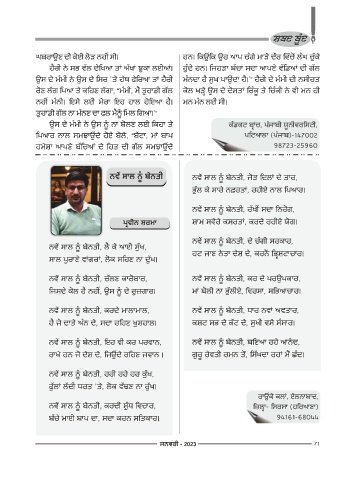 ਸ਼ਬਦ ਬੂੰਦ
ਘਬਰਾਉਣ ਦੀ ਕੋਈ ਲੋੜ ਨਹੀਂ ਸੀ।
ਹੈਰੀ ਨੇ ਸਭ ਵੱਲ ਦੇਖਿਆ ਤਾਂ ਅੱਖਾਂ ਝੁਕਾ ਲਈਆਂ।
ਉਸ ਦੇ ਮੰਮੀ ਨੇ ਉਸ ਦੇ ਸਿਰ 'ਤੇ ਹੱਥ ਫੇਰਿਆ ਤਾਂ ਹੈਰੀ
ਰੋਣ ਲੱਗ ਪਿਆ ਤੇ ਕਹਿਣ ਲੱਗਾ, "ਮੰਮੀ, ਮੈਂ ਤੁਹਾਡੀ ਗੱਲ
ਨਹੀਂ ਮੰਨੀ। ਇਸੇ ਲਈ ਮੇਰਾ ਇਹ ਹਾਲ ਹੋਇਆ ਹੈ।
ਤੁਹਾਡੀ ਗੱਲ ਨਾ ਮੰਨਣ ਦਾ ਫਲ ਮੈਨੂੰ ਮਿਲ ਗਿਆ।"
ਉਸ ਦੇ ਮੰਮੀ ਨੇ ਉਸ ਨੂੰ ਨਾ ਬੋਲਣ ਲਈ ਕਿਹਾ ਤੇ
ਪਿਆਰ ਨਾਲ ਸਮਝਾਉਂਦੇ ਹੋਏ ਬੋਲੇ, "ਬੇਟਾ, ਮਾਂ ਬਾਪ
ਹਮੇਸ਼ਾ ਆਪਣੇ ਬੱਚਿਆਂ ਦੇ ਹਿਤ ਦੀ ਗੱਲ ਸਮਝਾਉਂਦੇ
ਹਨ। ਕਿਉਂਕਿ ਉਹ ਆਪ ਚੰਗੇ ਮਾੜੇ ਦੌਰ ਵਿੱਚੋਂ ਲੰਘ ਚੁੱਕੇ
ਹੁੰਦੇ ਹਨ। ਜਿਹੜਾ ਬੱਚਾ ਸਦਾ ਆਪਣੇ ਵੱਡਿਆਂ ਦੀ ਗੱਲ
ਮੰਨਦਾ ਹੈ ਸੁਖ ਪਾਉਂਦਾ ਹੈ।" ਹੈਰੀ ਦੇ ਮੰਮੀ ਦੀ ਨਸੀਹਤ
ਕੋਲ ਖੜ੍ਹੇ ਉਸ ਦੇ ਦੋਸਤਾਂ ਰਿੰਕੂ ਤੇ ਚਿੰਕੀ ਨੇ ਵੀ ਮਨ ਹੀ
ਮਨ ਮੰਨ ਲਈ ਸੀ।
ਕੰਡਕਟ ਬ੍ਰਾਂਚ, ਪੰਜਾਬੀ ਯੂਨੀਵਰਸਿਟੀ,
ਪਟਿਆਲਾ (ਪੰਜਾਬ)-147002
98723-25960
ਨਵੇਂ ਸਾਲ ਨੂੰ ਬੇਨਤੀ
ਪ੍ਰਵੀਨ ਸ਼ਰਮਾ
ਨਵੇਂ ਸਾਲ ਨੂੰ ਬੇਨਤੀ, ਲੈ ਕੇ ਆਈਂ ਸੁੱਖ,
ਸਾਲ ਪੁਰਾਣੇ ਵਾਂਗਰਾਂ, ਲੋਕ ਸਹਿਣ ਨਾ ਦੁੱਖ।
ਨਵੇਂ ਸਾਲ ਨੂੰ ਬੇਨਤੀ, ਚੱਲਣ ਕਾਰੋਬਾਰ,
ਜਿਸਦੇ ਕੋਲ ਹੈ ਨਹੀਂ, ਉਸ ਨੂੰ ਦੇ ਰੁਜ਼ਗਾਰ।
ਨਵੇਂ ਸਾਲ ਨੂੰ ਬੇਨਤੀ, ਕਰਦੇ ਮਾਲਾਮਾਲ,
ਹੈ ਜੋ ਦਾਤੇ ਅੰਨ ਦੇ, ਸਦਾ ਰਹਿਣ ਖੁਸ਼ਹਾਲ।
ਨਵੇਂ ਸਾਲ ਨੂੰ ਬੇਨਤੀ, ਇਹ ਵੀ ਕਰ ਪਰਵਾਨ,
ਰਾਖੇ ਹਨ ਜੋ ਦੇਸ਼ ਦੇ, ਜਿਉਂਦੇ ਰਹਿਣ ਜਵਾਨ ।
ਨਵੇਂ ਸਾਲ ਨੂੰ ਬੇਨਤੀ, ਹਰੀ ਰਹੇ ਹਰ ਕੁੱਖ,
ਫੁੱਲਾਂ ਲੱਦੀ ਧਰਤ 'ਤੇ, ਲੋਕ ਵੱਢਣ ਨਾ ਰੁੱਖ।
ਨਵੇਂ ਸਾਲ ਨੂੰ ਬੇਨਤੀ, ਕਰਦੀਂ ਸ਼ੁੱਧ ਵਿਚਾਰ,
ਬੱਚੇ ਮਾਈ ਬਾਪ ਦਾ, ਸਦਾ ਕਰਨ ਸਤਿਕਾਰ।
ਨਵੇਂ ਸਾਲ ਨੂੰ ਬੇਨਤੀ, ਜੋੜ ਦਿਲਾਂ ਦੇ ਤਾਰ,
ਭੁੱਲ ਕੇ ਸਾਰੇ ਨਫ਼ਰਤਾਂ, ਰਹੀਏ ਨਾਲ ਪਿਆਰ।
ਨਵੇਂ ਸਾਲ ਨੂੰ ਬੇਨਤੀ, ਰੱਖੀਂ ਸਦਾ ਨਿਰੋਗ,
ਸ਼ਾਮ ਸਵੇਰੇ ਕਸਰਤਾਂ, ਕਰਦੇ ਰਹੀਏ ਯੋਗ।
ਨਵੇਂ ਸਾਲ ਨੂੰ ਬੇਨਤੀ, ਦੇ ਚੰਗੀ ਸਰਕਾਰ,
ਹਟ ਜਾਣ ਨੇਤਾ ਦੇਸ਼ ਦੇ, ਕਰਨੋਂ ਭ੍ਰਿਸ਼ਟਾਚਾਰ।
ਨਵੇਂ ਸਾਲ ਨੂੰ ਬੇਨਤੀ, ਕਰ ਦੇ ਪਰਉਪਕਾਰ,
ਮਾਂ ਬੋਲੀ ਨਾ ਭੁੱਲੀਏ, ਵਿਰਸਾ, ਸਭਿਆਚਾਰ।
ਨਵੇਂ ਸਾਲ ਨੂੰ ਬੇਨਤੀ, ਧਾਰ ਨਵਾਂ ਅਵਤਾਰ,
ਕਸ਼ਟ ਸਭ ਦੇ ਕੱਟ ਦੇ, ਸੁਖੀ ਵਸੇ ਸੰਸਾਰ।
ਨਵੇਂ ਸਾਲ ਨੂੰ ਬੇਨਤੀ, ਬਣਿਆ ਰਹੇ ਆਨੰਦ,
ਗੁਰੂ ਰੇਵਤੀ ਰਮਨ ਤੋਂ, ਸਿੱਖਦਾ ਰਹਾਂ ਮੈਂ ਛੰਦ।
ਰਾਉਕੇ ਕਲਾਂ, ਏਲਨਾਬਾਦ,
ਜ਼ਿਲ੍ਹਾ- ਸਿਰਸਾ (ਹਰਿਆਣਾ)
94161-68044
ਜਨਵਰੀ - 2023
71